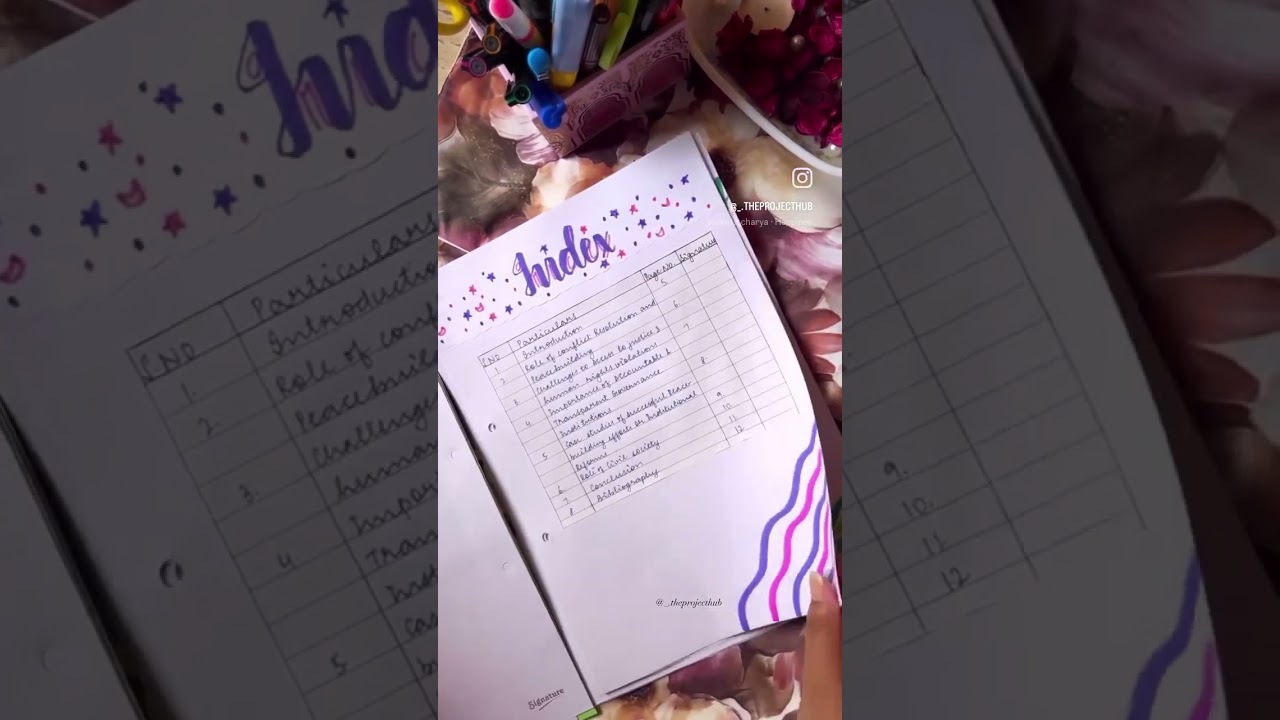 Index
S.NO Particulars Page No. Signature
1 Introduction 5
2 Role of conflict Resolution and 6
Peacebuilding
3 Challenges to access to justice & 7
human rights violations
4 Importance of Accountable & 8
Transparent Governance
Institutions
5 Case studies of successful Peace 9
building efforts or Institutional
Reforms
6 Role of civil society 10
7 Conclusion 11
8 Bibliography 12
@_.THEPROJECTHUB
@_.theprojecthub
Signature